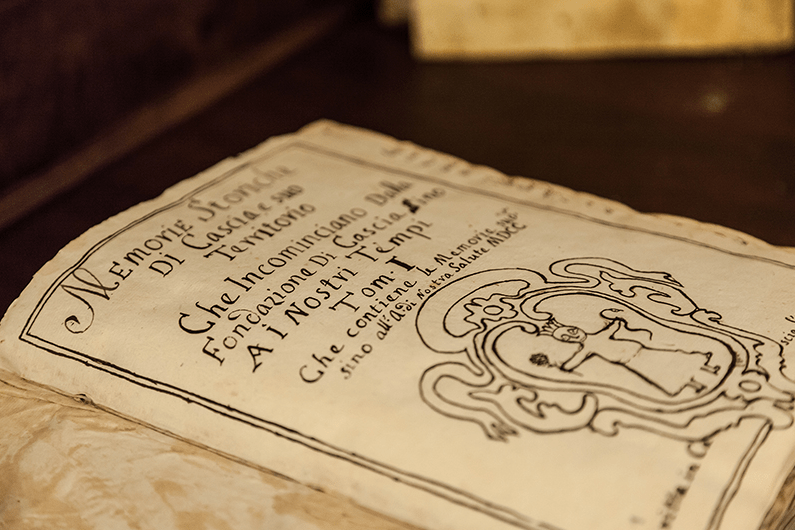 Memorie Storiche
Di Cascia e suo
Territorio
Che Incominciano Dalla
Fondazione Di Cascia sino
A i Nostri Tempi
Tom. I
Che contiene le Memorie
sino all'A di Nostra Salute MDCC